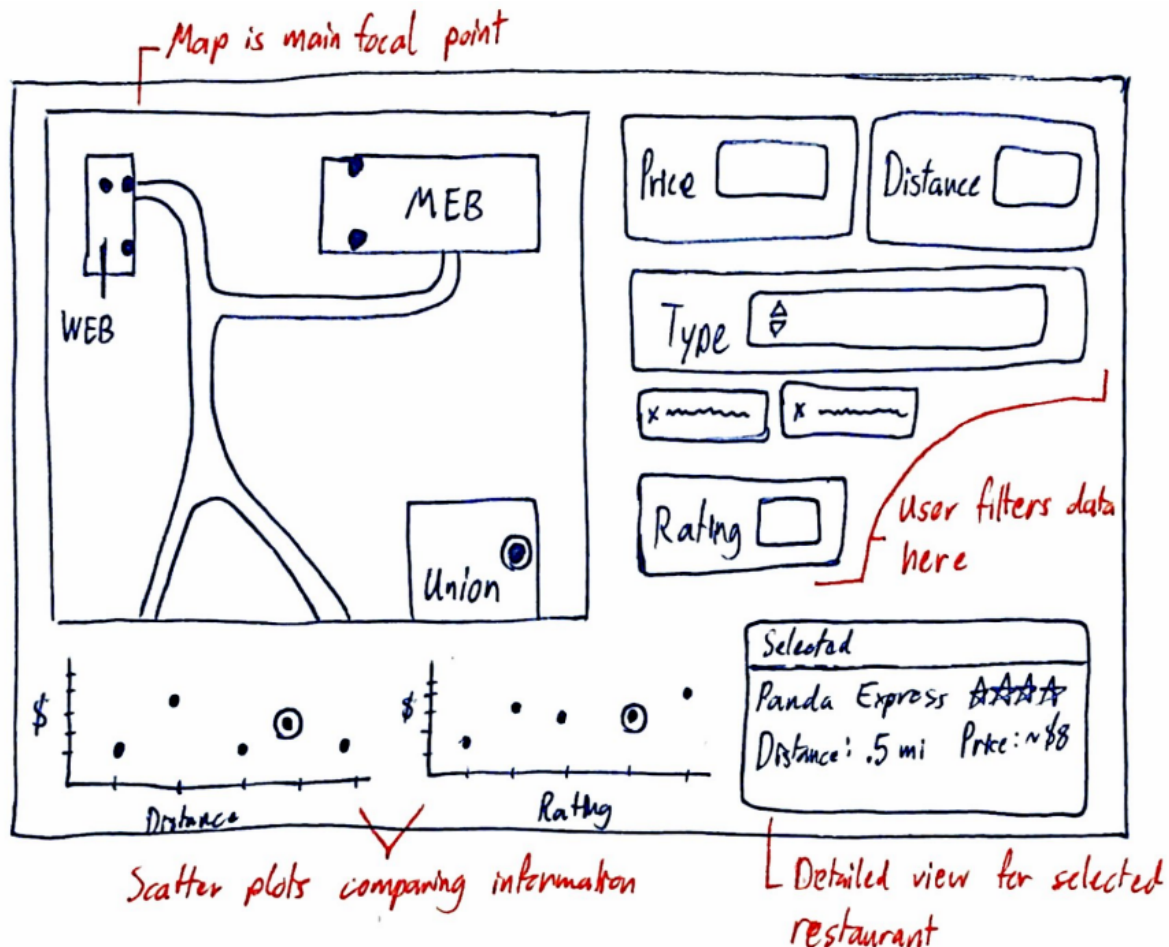 Map is main focal point
MEB
WEB
Union
Price
Distance
Type
x
x
Rating
User filters data
here
$
Distance
$
Rating
Selected
Panda Express
Distance: .5 mi Price: ~$8
Scatter plots comparing information
Detailed view for selected
restaurant